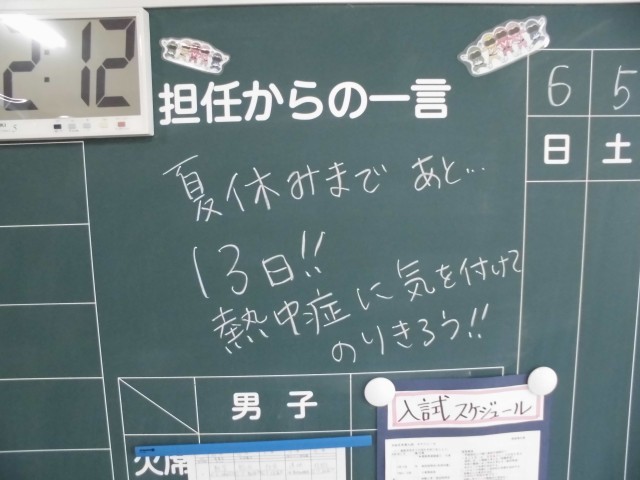 2:12
担任からの一言
6 5
日 土
夏休みまで あと…
13日!!
熱中症に気を付けて
のりきろう!!
男子
入試スケジュール
欠席